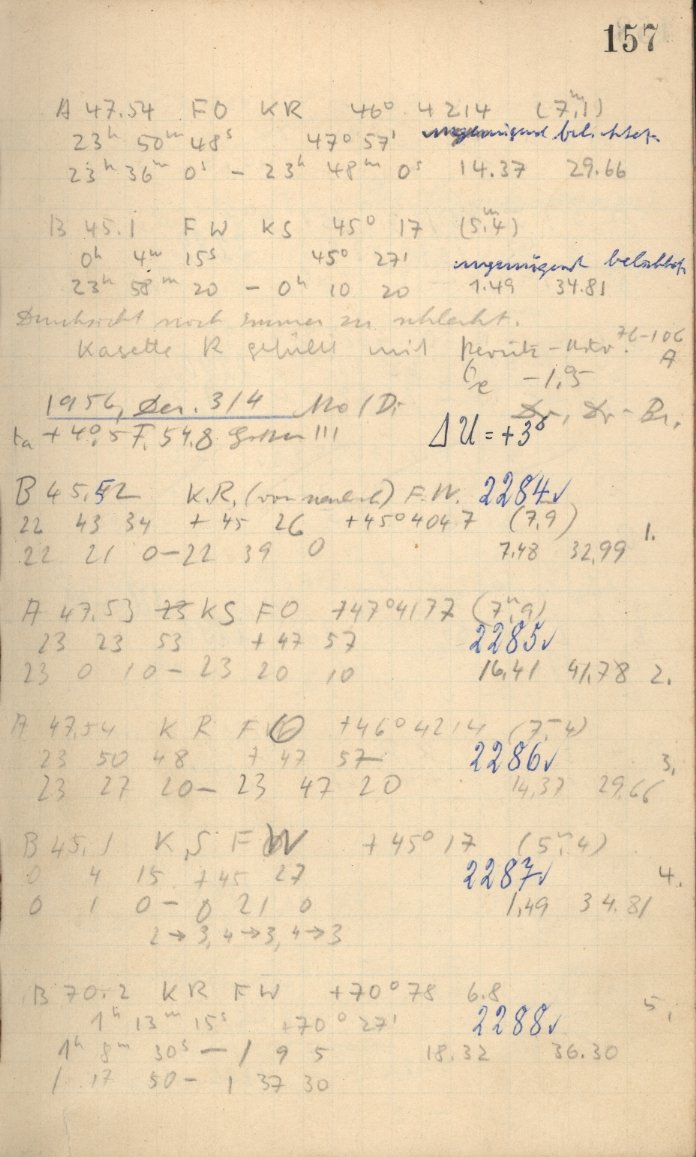 157
A 47.54 FO KR 46° 4214 (7,ᵐ1)
23ʰ 50ᵐ 48ˢ 47° 57' ungenügend belichtet.
23ʰ 36ᵐ 0ˢ – 23ʰ 48ᵐ 0ˢ 14.37 29.66
B 45.1 FW KS 45° 17 (5,ᵐ4)
0ʰ 4ᵐ 15ˢ 45° 27' ungenügend belichtet
23ʰ 58ᵐ 20 – 0ʰ 10 20 1.49 34.81
Durchsicht noch immer zu schlecht.
Kasette R gefüllt mit 76-106
A
–1,5
1956, Dez. 3/4 Mo/Di
+4°,5 F. 54.8 !!! ΔU = +3ˢ
B 45.52 K.R. (von neuem) F.W. 2284✓
22 43 34 + 45 26 +45°4047 (7,9) 1.
22 21 0 – 22 39 0 7.48 32,99
A 47.53 23 KS FO +47°4177 (7,ᵐ9)
23 23 53 + 47 57 2285✓
23 0 10 – 23 20 10 16,41 41,78 2.
A 47,54 K R F O +46°4214 (7,ᵐ4)
23 50 48 + 47 57 2286✓ 3.
23 27 20 – 23 47 20 14,37 29.66
B 45,1 K,S F W +45°17 (5,ᵐ4)
0 4 15 +45 27 2287✓ 4.
0 1 0 – 0 21 0 1,49 34.81
2→3, 4→3, 4→3
B 70.2 KR FW +70°78 6.8
1ʰ 13ᵐ 15ˢ +70° 27' 2288✓ 5.
1ʰ 8ᵐ 30ˢ – 1 9 5 18.32 36.30
1 17 50 – 1 37 30